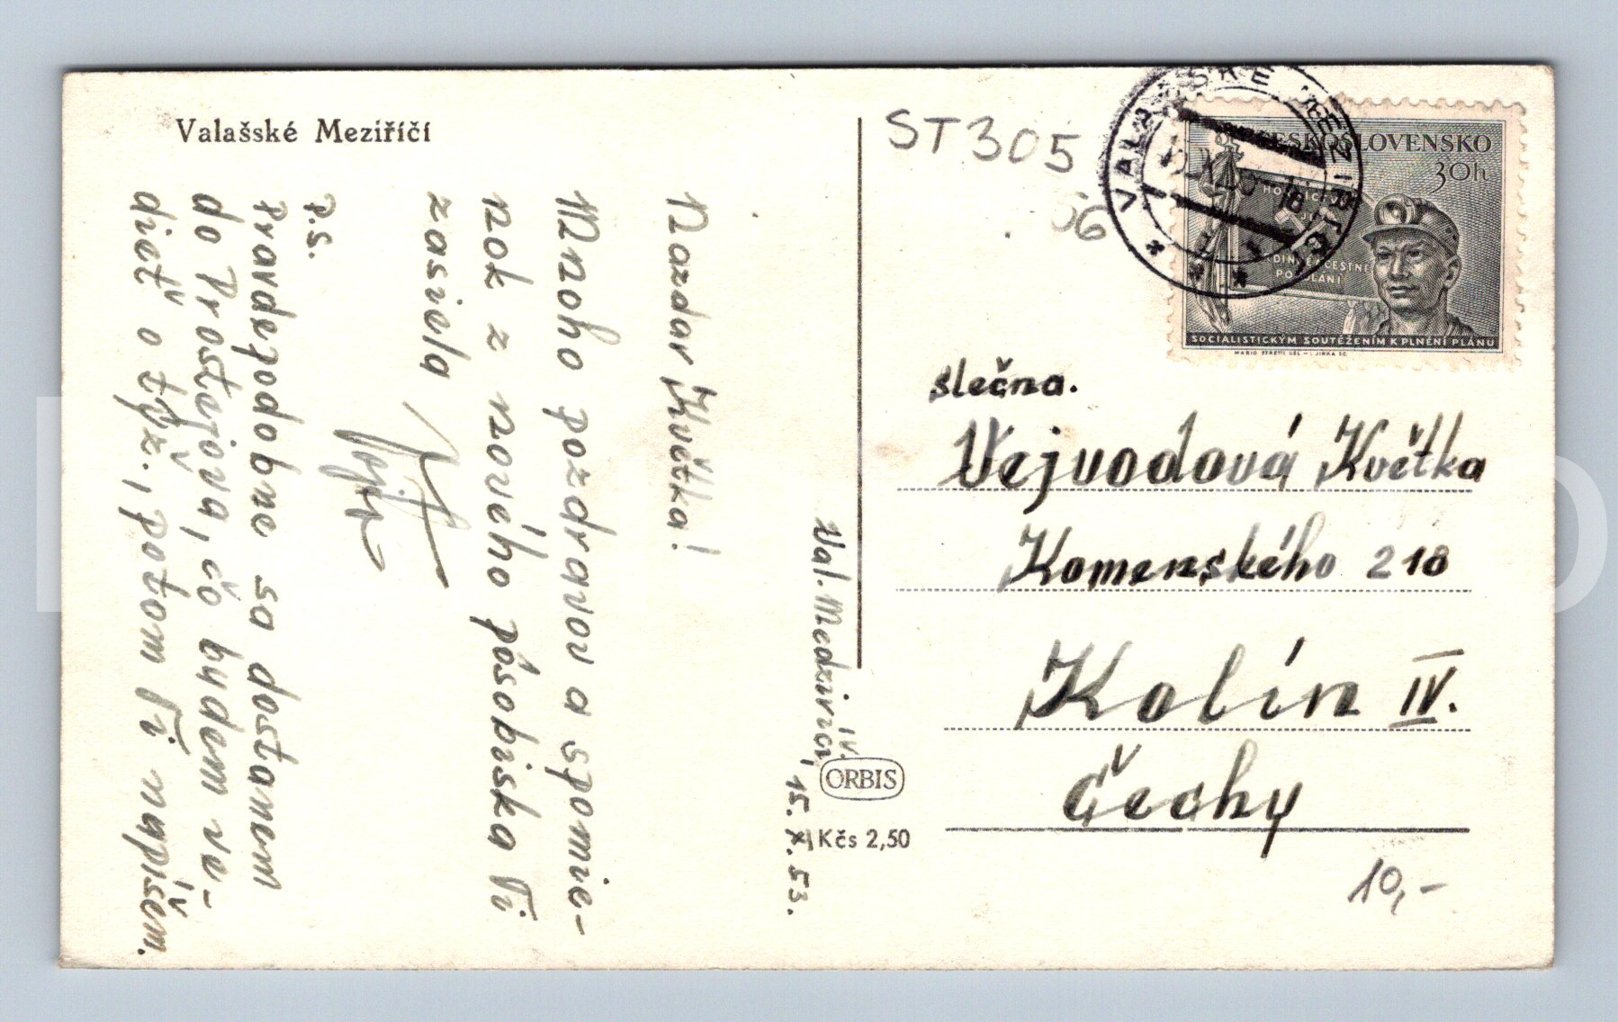 Valašské Meziříčí
ST 305
56
VALAŠSKÉ MEZIŘÍČÍ
ČESKOSLOVENSKO
30h
SOCIALISTICKÝM SOUTĚŽENÍM K PLNĚNÍ PLÁNU
Val. Medziričí 15. X. 53.
Nazdar Květka!
Mnoho pozdravov a spomie-
nok z nového pôsobiska Ti
zasiela
Vojto
P.S.
Pravdepodobne sa dostanem
do Prostejova, čo budem ve-
dieť o týž., potom Ti napíšem.
slečna.
Vejvodová Květka
Komenského 218
Kolín IV.
Čechy
ORBIS
Kčs 2,50
10,-